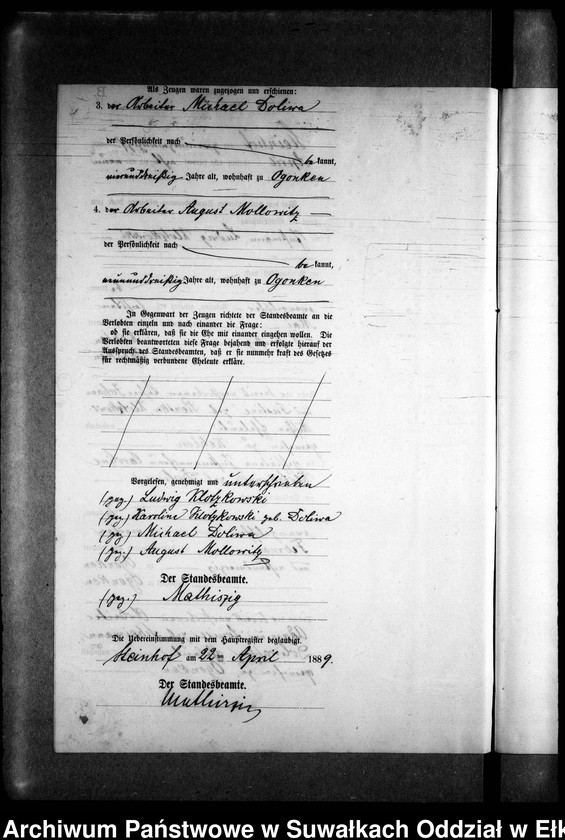 Als Zeugen waren zugezogen und erschienen:
3. der Arbeiter Michael Doliwa
der Persönlichkeit nach
bekannt,
vierunddreißig Jahre alt, wohnhaft zu Ogonken
4. der Arbeiter August Mollowitz
der Persönlichkeit nach
bekannt,
neununddreißig Jahre alt, wohnhaft zu Ogonken
In Gegenwart der Zeugen richtete der Standesbeamte an die
Verlobten einzeln und nach einander die Frage:
ob sie erklären, daß sie die Ehe mit einander eingehen wollen. Die
Verlobten beantworteten diese Frage bejahend und erfolgte hierauf der
Ausspruch des Standesbeamten, daß er sie nunmehr kraft des Gesetzes
für rechtmäßig verbundene Eheleute erkläre.
Vorgelesen, genehmigt und unterschrieben
(gez.) Ludwig Klotzkowski
(gez.) Karoline Klotzkowski geb. Doliwa
(gez.) Michael Doliwa
(gez.) August Mollowitz
Der Standesbeamte.
(gez.) Mathiszig
Die Uebereinstimmung mit dem Hauptregister beglaubigt.
Steinhof am 22ten April 1889.
Der Standesbeamte.
Mathiszig
Archiwum Państwowe w Suwałkach Oddział w Ełk